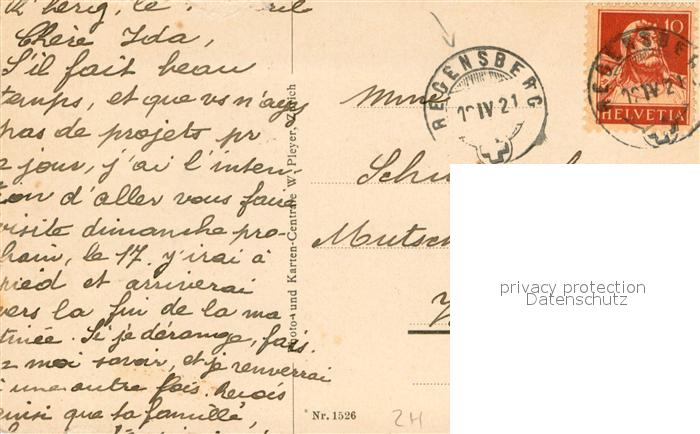 Chère Ida,
S'il fait beau
temps, et que vs n'ayez
pas de projets pr
jour, j'ai l'inten-
tion d'aller vous faire
visite dimanche pro-
chain, le 17. j'irai à
ried et arriverai
vers la fin de la ma
tinée. Si je dérange, fais
moi savoir, et je renverrai
à une autre fois. Reçois
ainsi que ta famille,
Photo- und Karten-Centrale W. Pleyer, Zürich
Nr. 1526
2H
REGENSBERG
IV 21
10
HELVETIA
REGENSBERG
IV 21
Mme
Schu
Mutsch
privacy protection
Datenschutz